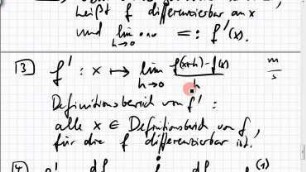 heißt f differenzierbar an x
und lim h→0 ... =: f'(x).
3 f' : x ↦ lim h→0 f(x+h)-f(x) / h m/s
Definitionsbereich von f' :
alle x ∈ Definitionsbereich von f,
für die f differenzierbar ist.